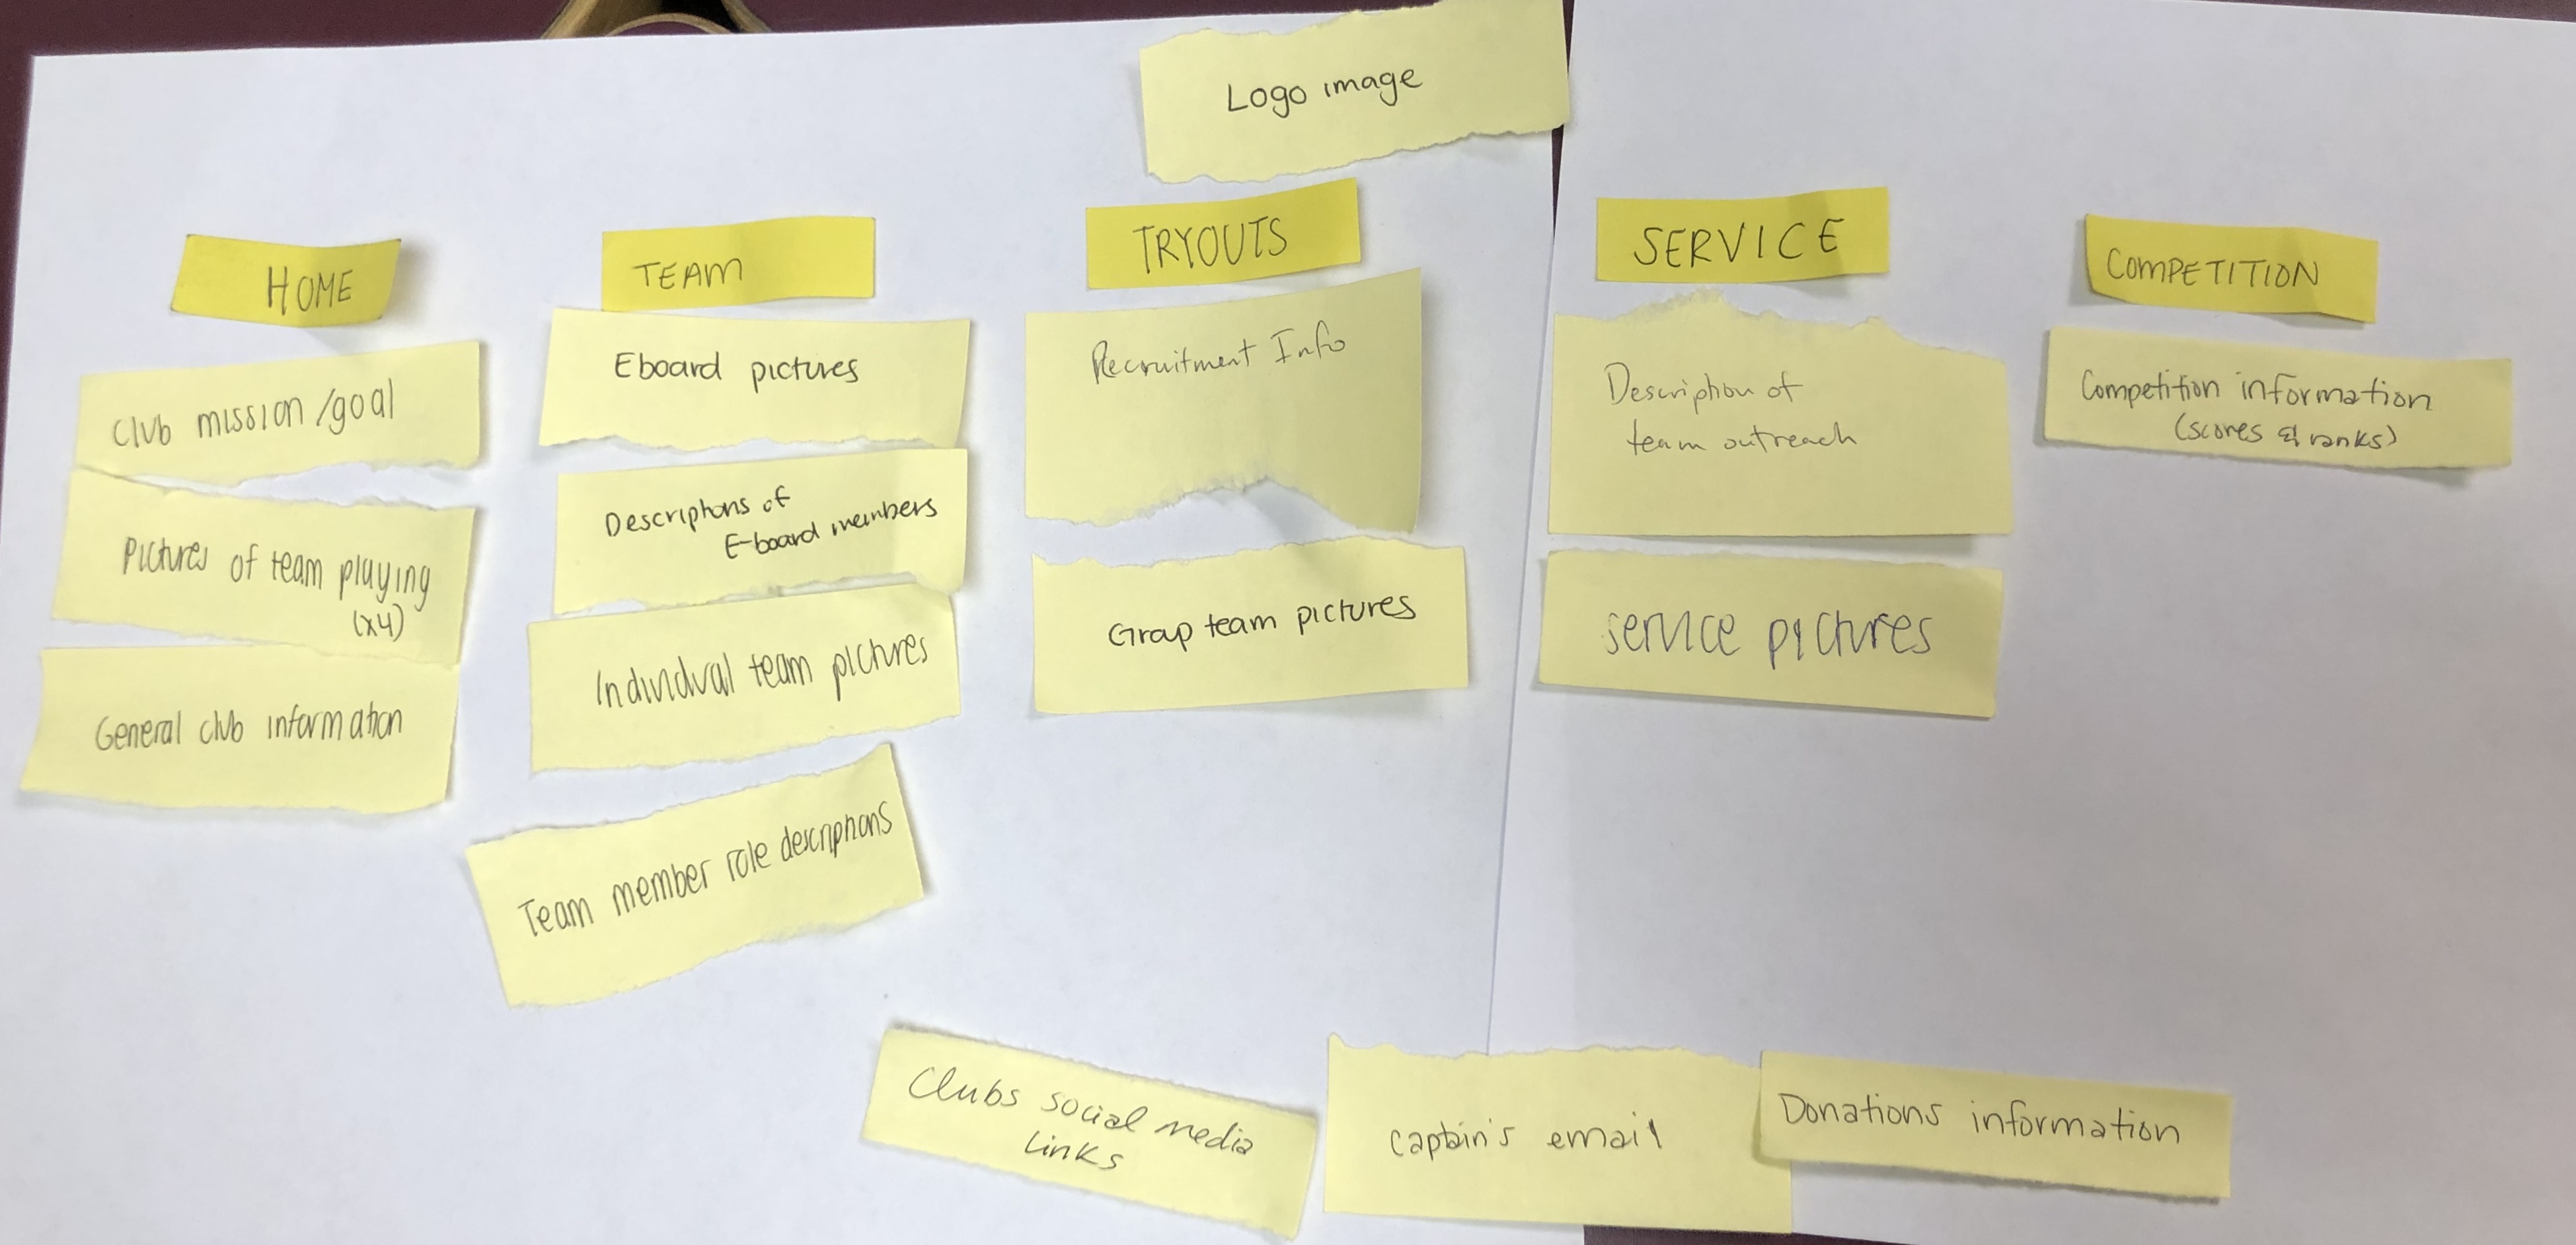 Logo image
HOME
Club mission/goal
Pictures of team playing
(x4)
General club information
TEAM
Eboard pictures
Descriptions of
E-board members
Individual team pictures
Team member role descriptions
TRYOUTS
Recruitment Info
Group team pictures
SERVICE
Description of
team outreach
service pictures
COMPETITION
Competition information
(scores & ranks)
Clubs social media
Links
captain's email
Donations information